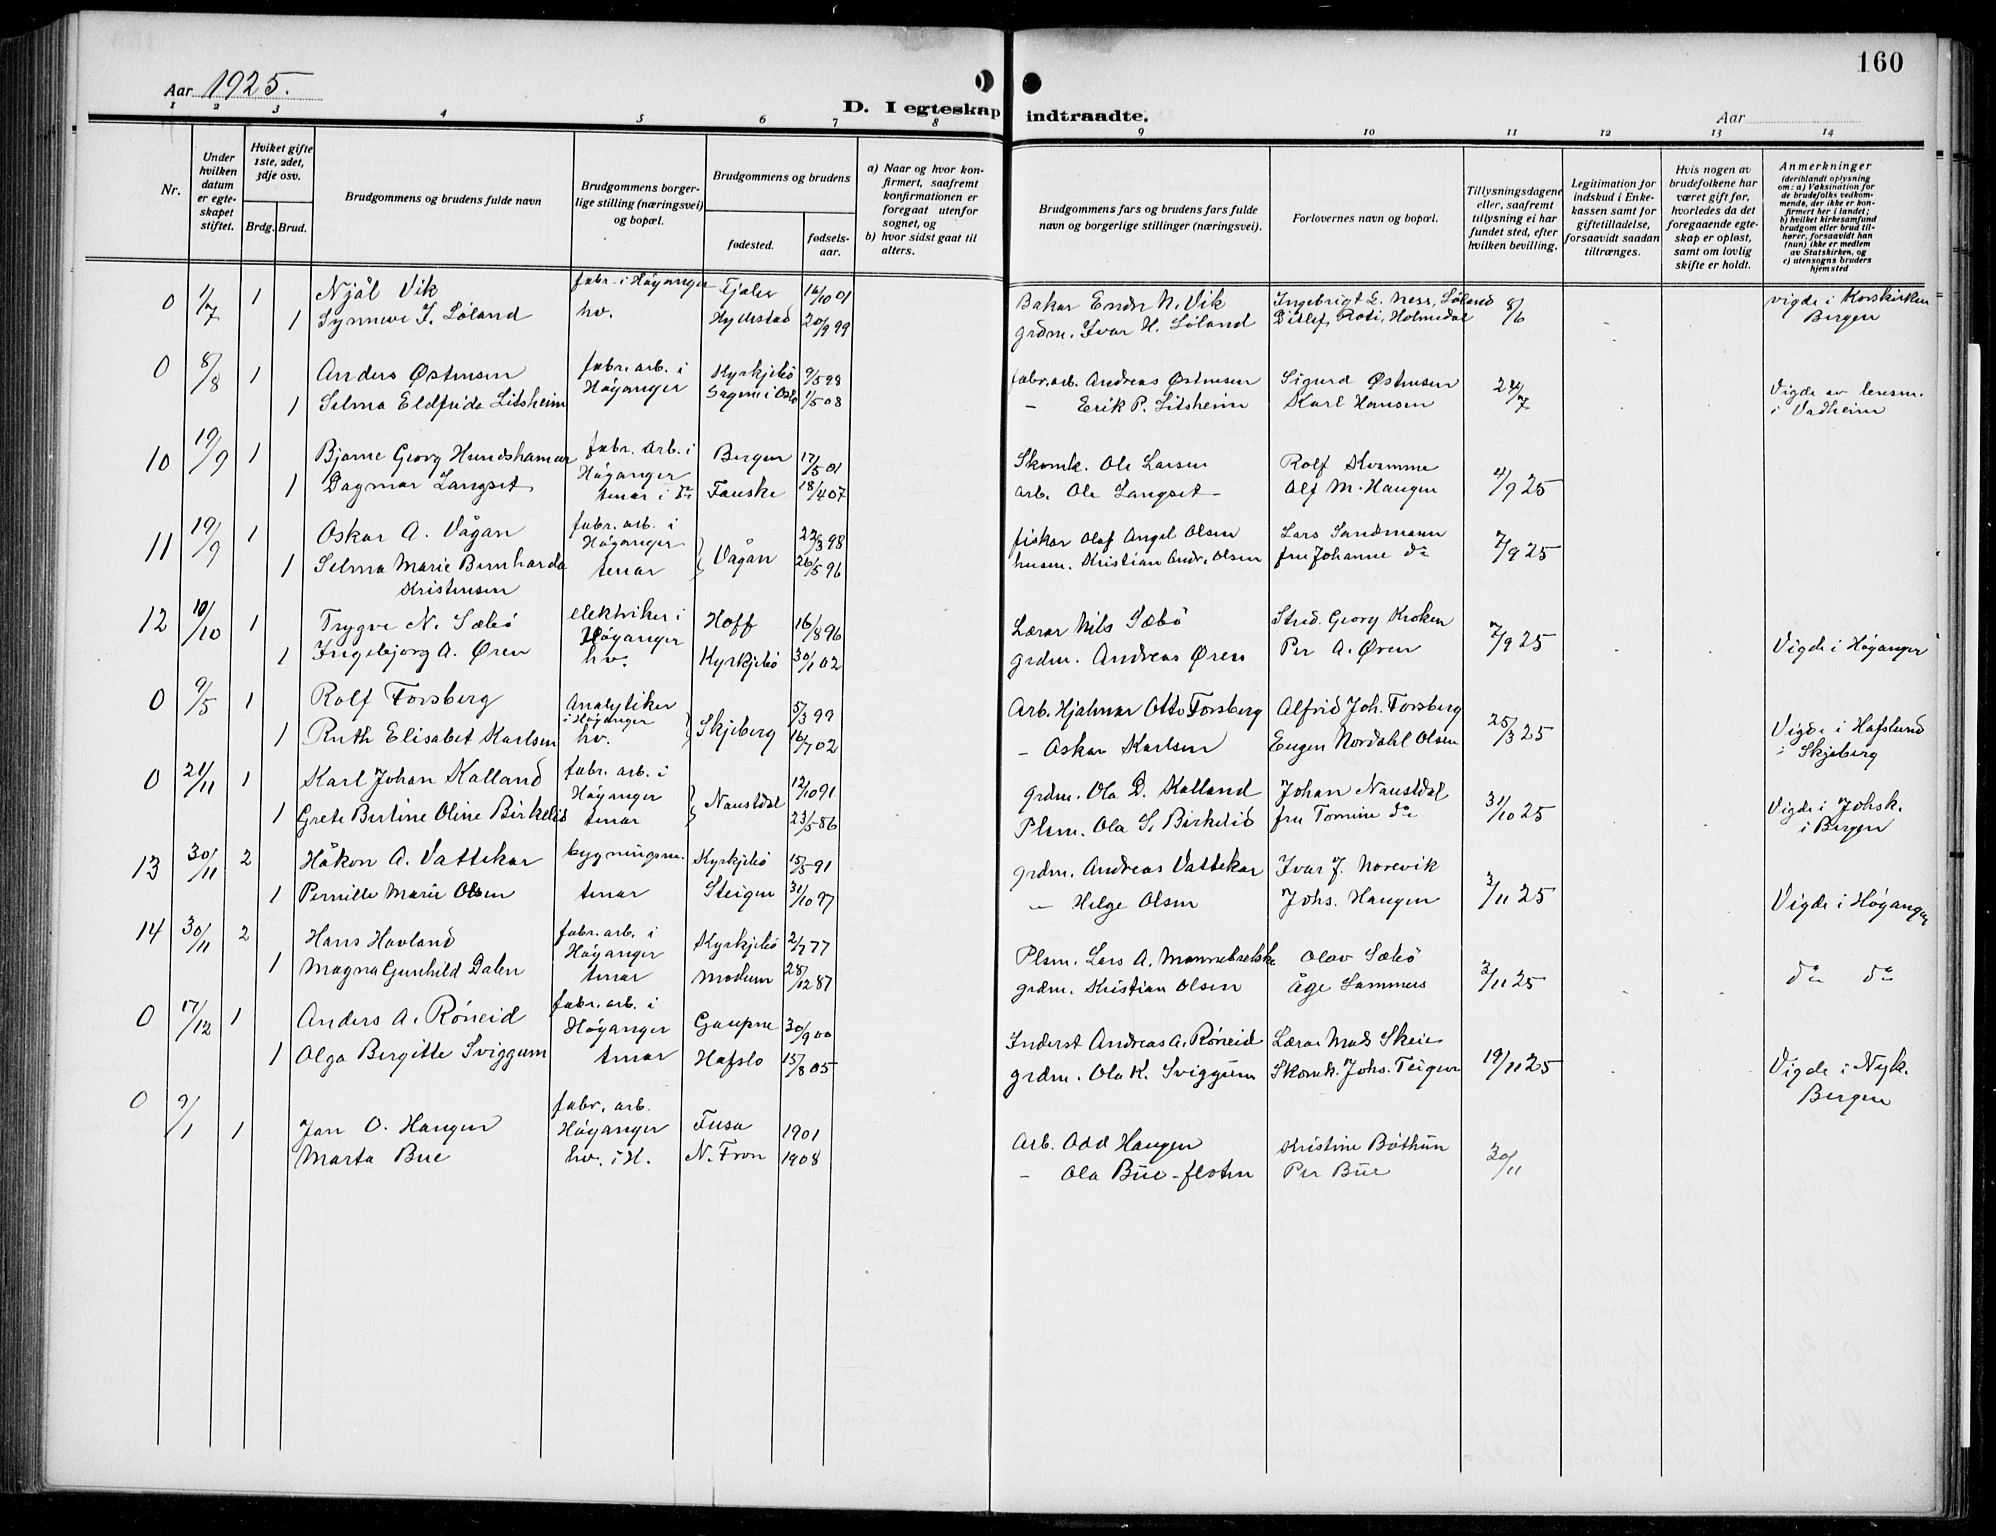 160
Aar 1925.
D. I egteskap indtraadte.
Aar
1 2 3 4 5 6 7 8 9 10 11 12 13 14
Nr.
Under hvilken datum er egteskapet stiftet.
Hviket gifte 1ste, 2det, 3dje osv.
Brdg. Brud.
Brudgommens og brudens fulde navn
Brudgommens borgerlige stilling (næringsvei) og bopæl.
Brudgommens og brudens
fødested.
fødselsaar.
a) Naar og hvor konfirmert, saafremt konfirmationen er foregaat utenfor sognet, og
b) hvor sidst gaat til alters.
Brudgommens fars og brudens fars fulde navn og borgerlige stillinger (næringsvei).
Forlovernes navn og bopæl.
Tillysningsdagene eller, saafremt tillysning ei har fundet sted, efter hvilken bevilling.
Legitimation for indskud i Enkekassen samt for giftetilladelse, forsaavidt saadan tiltrænges.
Hvis nogen av brudefolkene har været gift før, hvorledes da det foregaaende egteskap er opløst, samt om lovlig skifte er holdt.
Anmerkninger
(deriblandt oplysning om: a) Vaksination for de brudefolks vedkommende, der ikke er konfirmert her i landet; b) hvilket kirkesamfund brudgom eller brud tilhører, forsaavidt han (hun) ikke er medlem av Statskirken, og c) utensogns bruders hjemsted
0 1/7 1 Njål Vik fabr. i Høyanger Fjaler 16/10 01 Bakar Endr N. Vik Ingebrigt L. Ness, Løland 8/6 vigde i Korskirken
1 Synneve I. Løland hv. Hyllestad 20/9 99 grdm. Ivar H. Løland Ditlef Roti, Holmedal Bergen
0 8/8 1 Anders Østensen fabr. arb. i Høyanger Kyrkjebø 9/5 98 fabr. arb. Andreas Østensen Sigurd Østensen 24/7 Vigde av lensm.
1 Selma Eldfrida Litsheim Sagene i Oslo 1/5 08 – Erik P. Litsheim Karl Hansen i Vadheim
10 19/9 1 Bjarne Georg Hundshamar fabr. arb. i Høyanger Bergen 17/5 01 Skomk. Ole Larsen Rolf Kvamme 4/9 25
1 Dagmar Langset tenar i do Fauske 18/4 07 arb. Ole Langset – Alf M. Haugen
11 19/9 1 Oskar A. Vågan fabr. arb. i Høyanger Vågan 22/3 98 fiskar Olaf Angel Olsen Lars Sandmann 7/9 25
1 Selma Marie Bernharda tenar 26/5 96 husm. Kristian Andr. Olsen fru Johanne do
Kristensen
12 10/10 1 Trygve N. Sæbø elektriker i Høyanger Hoff 16/8 96 Lærar Nils Sæbø Stud. Georg Kroken 7/9 25 Vigde i Høyanger
1 Ingebjorg A. Øren hv. Kyrkjebø 30/1 02 grdm. Andreas Øren Per A. Øren
0 9/5 1 Rolf Forsberg Analytiker i Høyanger Skjeberg 5/3 99 Arb. Hjalmar Otto Forsberg Alfrid Joh. Forsberg 25/3 25 Vigde i Hafslund
1 Ruth Elisabet Karlsen hv. 16/7 02 – Oskar Karlsen Eugen Nordahl Olsen i Skjeberg
0 21/11 1 Karl Johan Kalland fabr. arb. i Høyanger Naustdal 12/10 91 grdm. Ola D. Kalland Johan Naustdal 31/10 25 Vigde i Johsk.
1 Grete Bertine Oline Birkelid tenar 23/5 86 Plsm. Ola S. Birkelid fru Tomine do i Bergen
13 30/11 2 Håkon A. Vattekar bygningsm. Kyrkjebø 15/5 91 grdm. Andreas Vattekar Ivar J. Norevik 3/11 25 Vigde i Høyanger
1 Pernille Marie Olsen tenar Steigen 31/10 97 – Helge Olsen Johs. Haugen
14 30/11 2 Hans Havland fabr. arb. i Høyanger Kyrkjebø 2/7 77 Plsm. Lars A. Mannebrekke Olav Sæbø 3/11 25 do do
1 Magna Gunhild Dalen tenar Modum 28/12 87 grdm. Kristian Olsen Åge Lammers
0 17/12 1 Anders A. Røneid fabr. arb. i Høyanger Gaupne 30/9 00 Inderst Andreas A. Røneid Lærar Mads Skeie 19/11 25 Vigde i Nyk.
1 Olga Bergitte Sviggum tenar Hafslo 15/8 05 grdm. Ola K. Sviggum Skomk. Johs. Teigen Bergen
0 9/1 1 Jan O. Haugen fabr. arb. Høyanger Fusa 1901 Arb. Odd Haugen Kristine Bøthun 30/11
Marta Bue hv. i H. N. Fron 1908 – Ola Bue – Per Bue